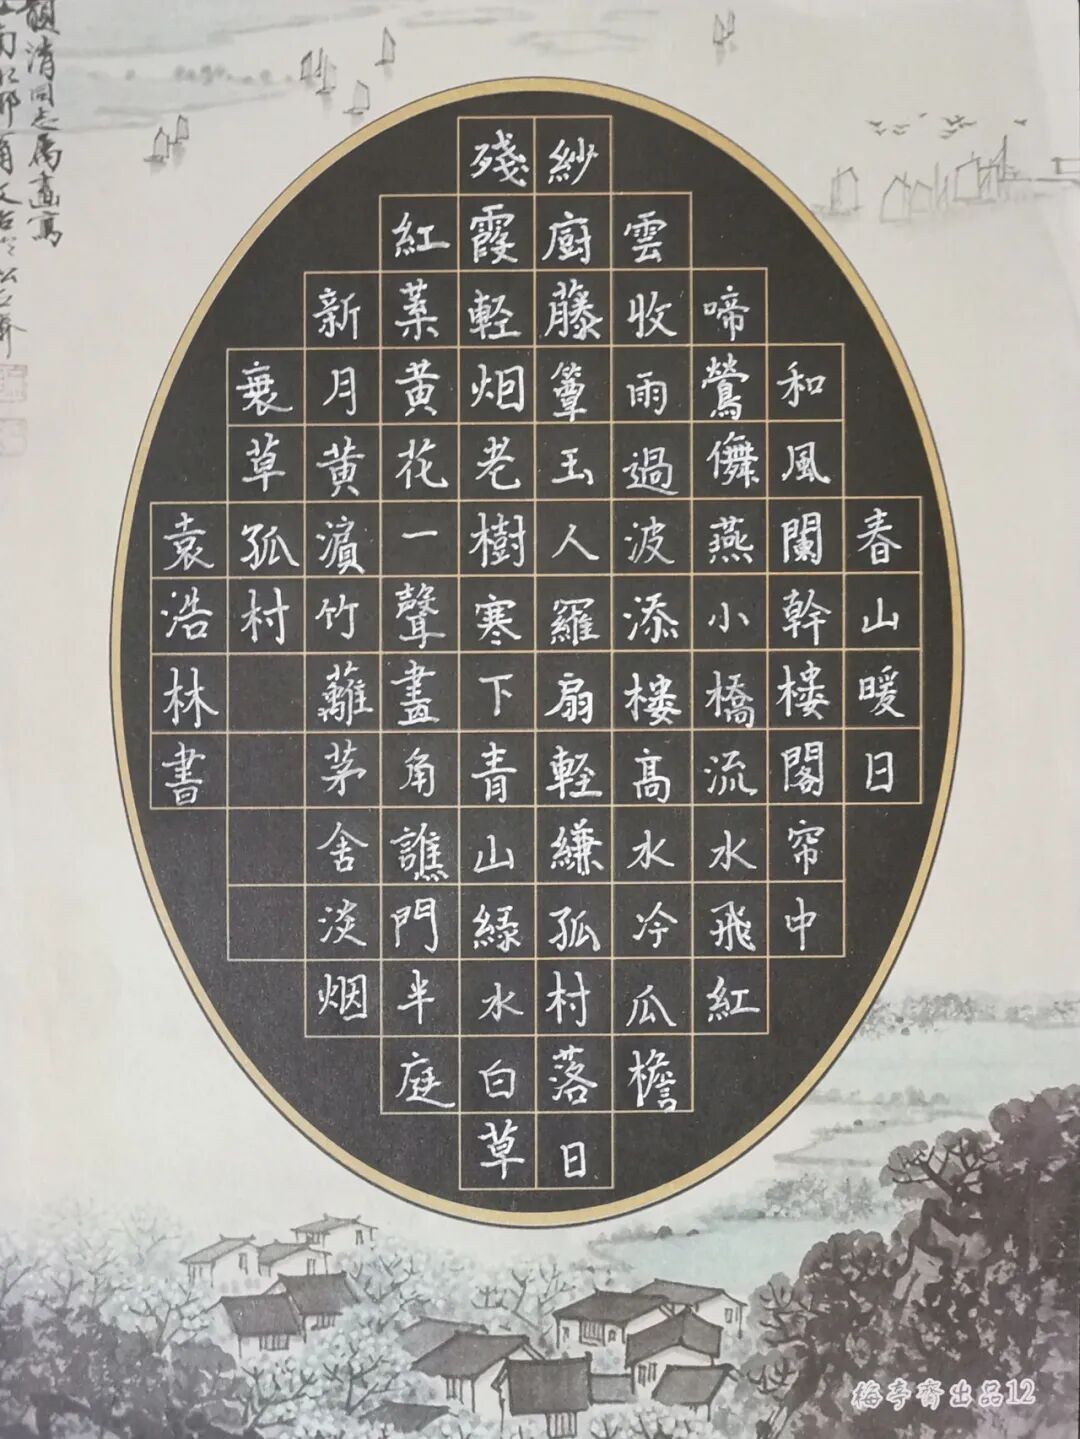 春山暖日
和風闌幹樓閣帘中
啼鶯儛燕小橋流水飛紅
雲收雨過波添樓高水冷瓜檐
紗廚藤簟玉人羅扇軽縑孤村落日
殘霞軽烟老樹寒下青山綠水白草
紅葉黄花一聲畫角譙門半庭
新月黄濵竹蘺茅舍淡烟
衰草孤村
袁浩林書
清同志属畫寫
梅亭齊出品12